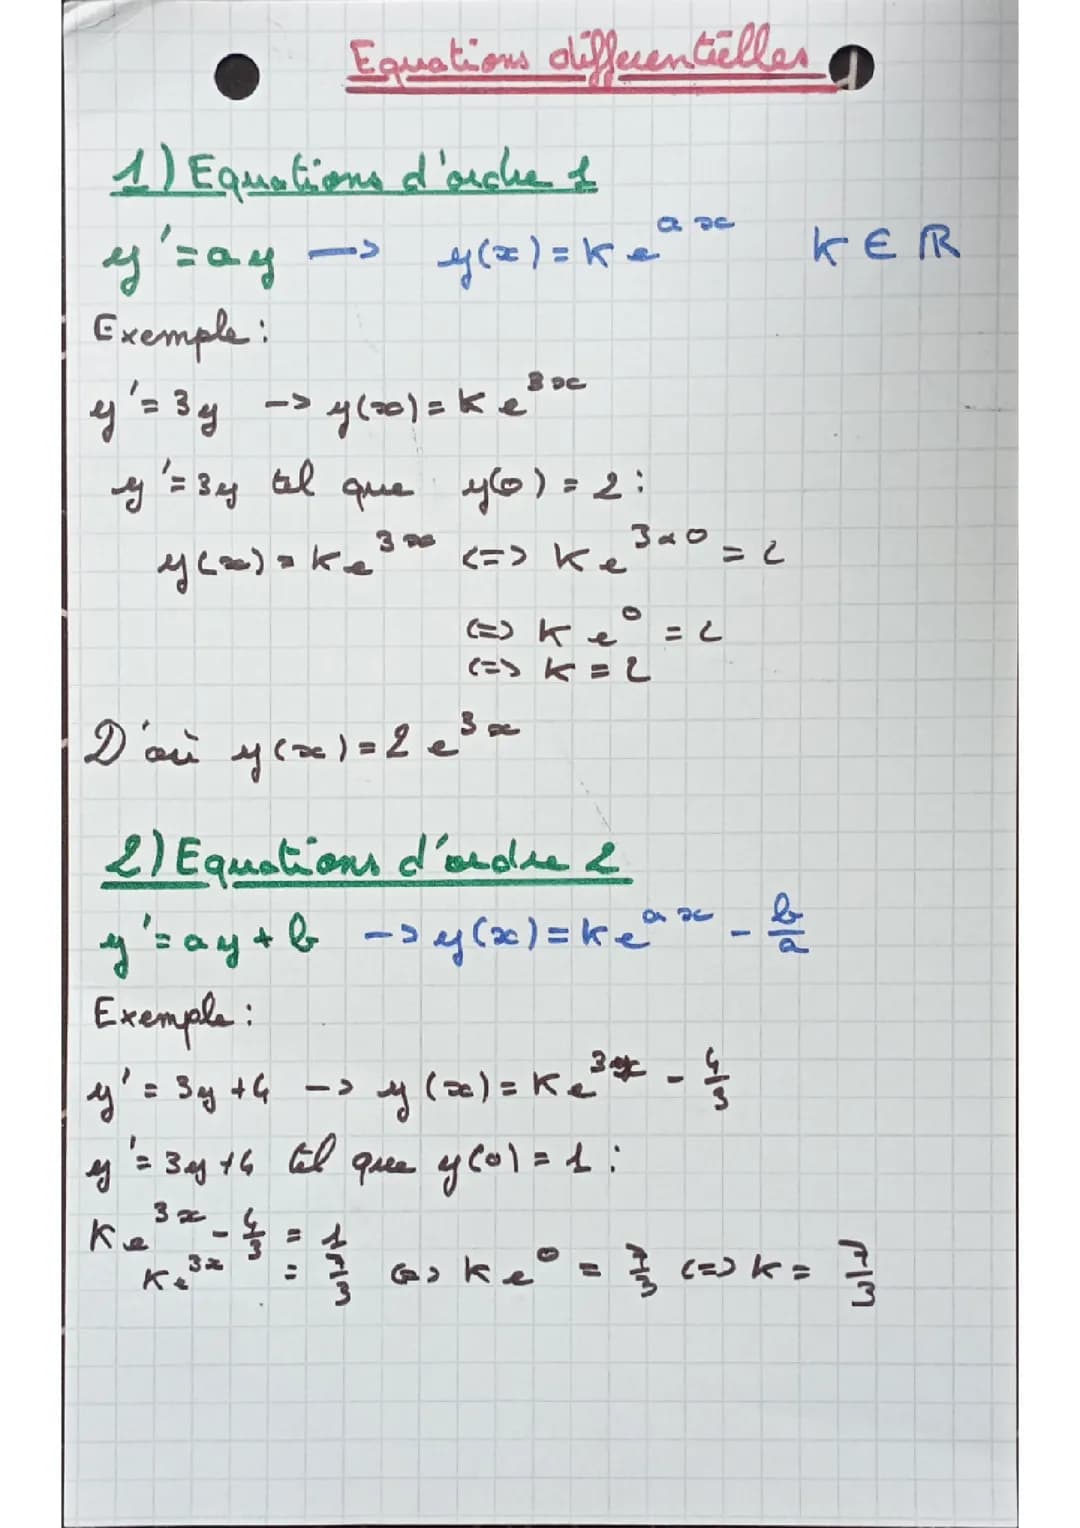 Equations différentielles
1) Equations d'ordre 1
y' = ay -> y(x) = K e^{ax} K ∈ ℝ
Exemple :
y' = 3y -> y(x) = K e^{3x}
y' = 3y tel que y(0) = 2 :
y(x) = K e^{3x} <=> K e^{3x0} = 2
<=> K e^0 = 2
<=> K = 2
D'où y(x) = 2 e^{3x}
2) Equations d'ordre 2
y' = ay + b -> y(x) = K e^{ax} - b/a
Exemple :
y' = 3y + 4 -> y(x) = K e^{3x} - 4/3
y' = 3y + 4 tel que y(0) = 1 :
K e^{3x} - 4/3 = 1
K e^{3x} = 7/3 <=> K e^0 = 7/3 <=> K = 7/3